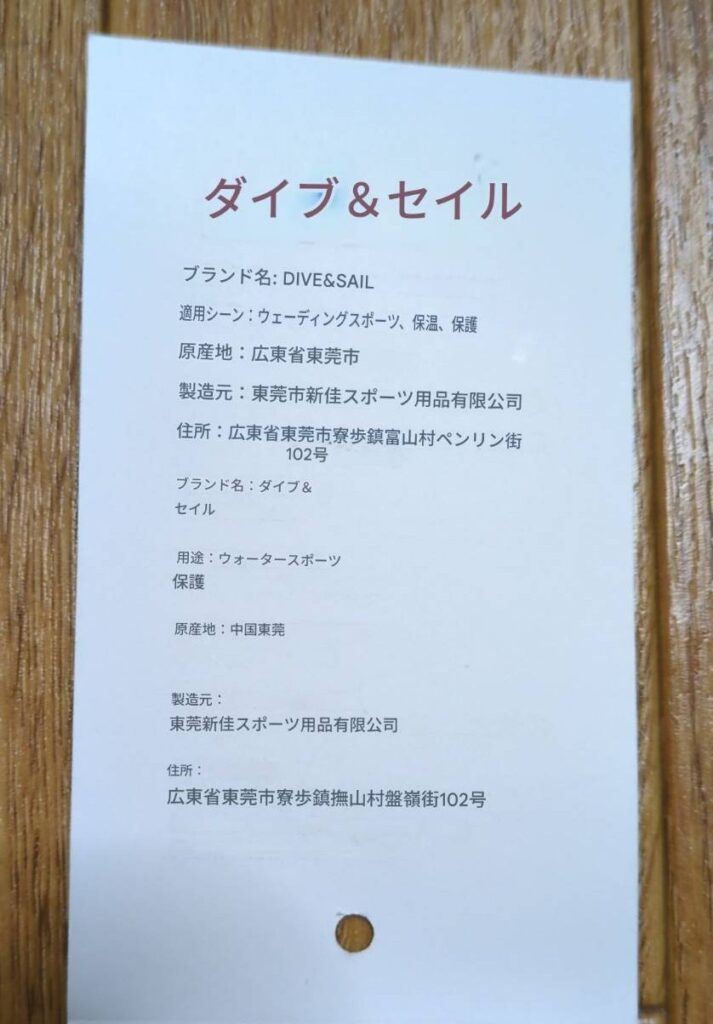 ダイブ＆セイル
ブランド名: DIVE&SAIL
適用シーン：ウェーディングスポーツ、保温、保護
原産地：広東省東莞市
製造元：東莞市新佳スポーツ用品有限公司
住所：広東省東莞市寮歩鎮富山村ペンリン街
102号
ブランド名：ダイブ＆
セイル
用途：ウォータースポーツ
保護
原産地：中国東莞
製造元：
東莞新佳スポーツ用品有限公司
住所：
広東省東莞市寮歩鎮撫山村盤嶺街102号